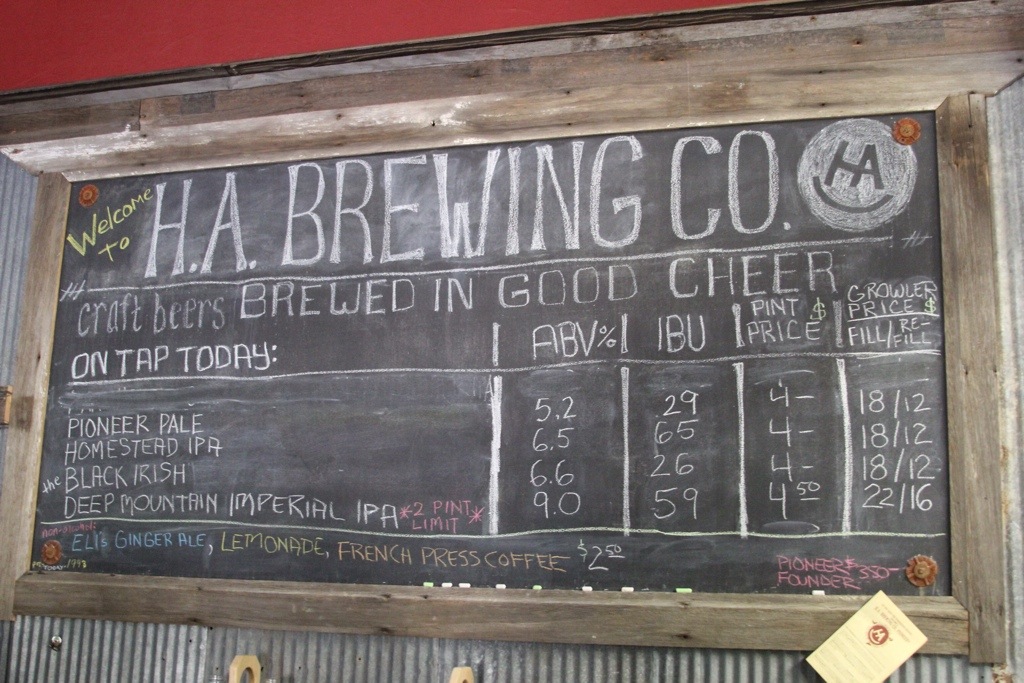 Welcome to
H.A. BREWING CO.
HA
craft beers BREWED IN GOOD CHEER
ON TAP TODAY: ABV% IBU PINT PRICE $ GROWLER PRICE $ FILL/RE-FILL
PIONEER PALE 5.2 29 4- 18/12
HOMESTEAD IPA 6.5 65 4- 18/12
the BLACK IRISH 6.6 26 4- 18/12
DEEP MOUNTAIN IMPERIAL IPA *2 PINT LIMIT* 9.0 59 4 50 22/16
ELI's GINGER ALE, LEMONADE, FRENCH PRESS COFFEE $2 50
PIONEER
FOUNDER
HA